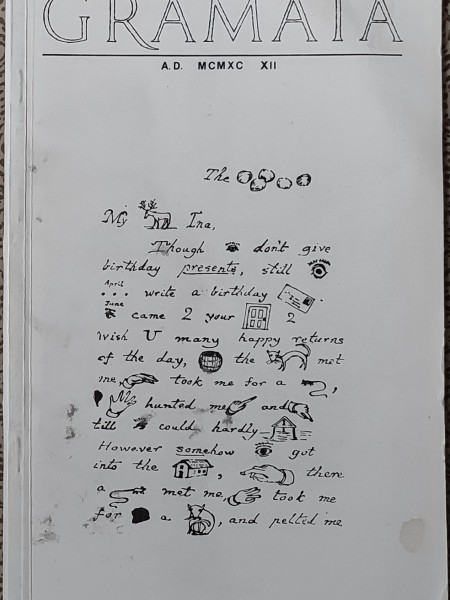 GRAMATA
A.D. MCMXC XII
The
My Ina,
Though don't give
birthday presents, still
April
... write a birthday
June
came 2 your 2
wish U many happy returns
of the day, the met
me, took me for a ,
hunted me and
till could hardly
However somehow got
into the , there
a met me, took me
for a , and pelted me